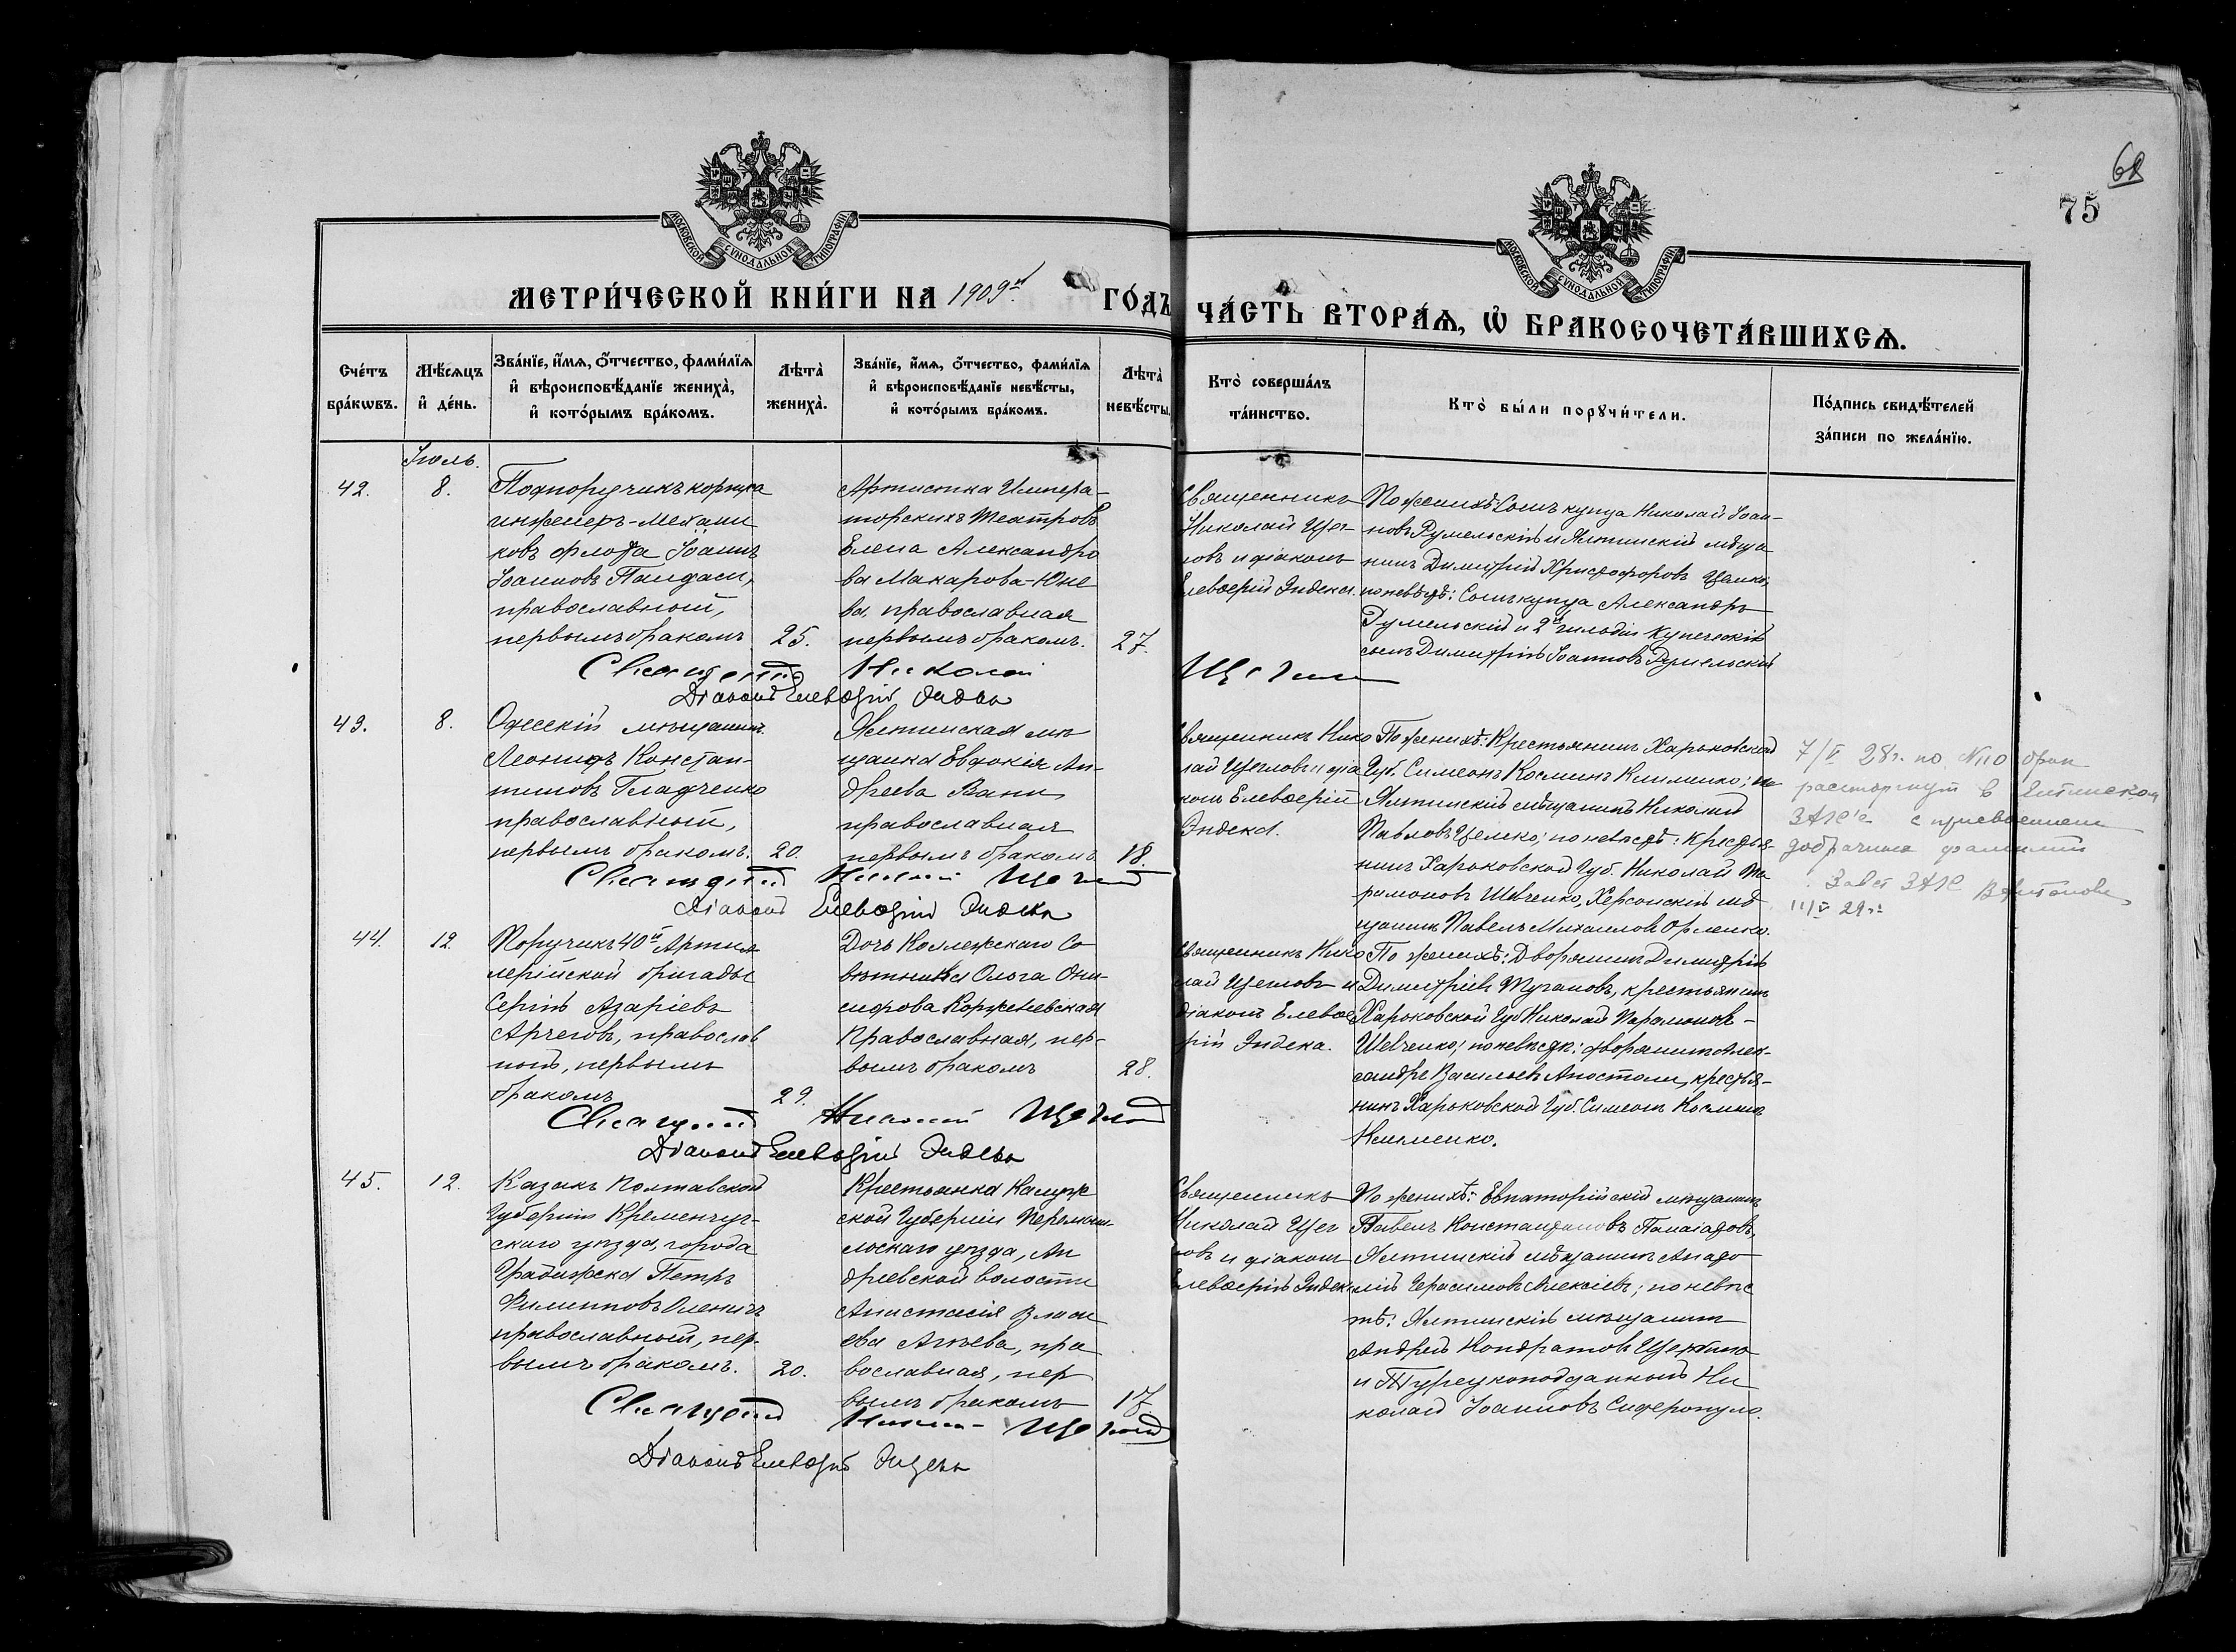 68
75
МОСКОВСКОЙ СѴНОДАЛЬНОЙ ТИПОГРАФІИ
МОСКОВСКОЙ СѴНОДАЛЬНОЙ ТИПОГРАФІИ
МЕТРИ́ЧЕСКОЙ КНИ́ГИ НА 1909й ГО́ДЪ
ЧА́СТЬ ВТОРА́Ѧ, Ѽ БРАКОСОЧЕТА́ВШИХСѦ.
Сче́тъ бра́кѡвъ.
Мѣ́сѧцъ и҆ де́нь.
Зва́нїе, и҆́мѧ, о҆́тчество, фами́лїѧ и҆ вѣроисповѣ́данїе жениха̀, и҆ кото́рымъ бра́комъ.
Лѣта̀ жениха̀.
Зва́нїе, и҆́мѧ, о҆́тчество, фами́лїѧ и҆ вѣроисповѣ́данїе невѣ́сты, и҆ кото́рымъ бра́комъ.
Лѣта̀ невѣ́сты.
Кто̀ соверша́лъ та́инство.
Кто̀ бы́ли порꙋчи́тели.
По́дпись свидѣ́телей за́писи по жела́нїю.
Іюль.
42.
8.
Подпоручикъ корпуса
инженеръ-механи
ковъ флота Іоаннъ
Іоанновъ Пандази,
православный,
первымъ бракомъ
25.
Артистка Импера-
торскихъ театровъ
Елена Александро
ва Макарова-Юне
ва, православная
первымъ бракомъ.
27.
Священникъ
Николай Щег-
ловъ и діаконъ
Елевѳерій Эндека.
По женихѣ: Сынъ купца Николай Іоан-
новъ Румельскій и Ялтинскій мѣща
нинъ Димитрій Христофоровъ Целио;
по невѣстѣ: Сынъ купца Александръ
Румельскій и 2й гильдіи купеческій
сынъ Димитрій Іоанновъ Румельскій
Священникъ Николай Щегловъ
Діаконъ Елевѳерій Эндека
43.
8.
Одесскій мѣщанинъ
Леонидъ Констан-
тиновъ Гладченко
православный,
первымъ бракомъ.
20.
Ялтинская мѣ
щанка Евдокія Ан-
дреева Вани
православная
первымъ бракомъ
18.
Священникъ Нико
лай Щегловъ и діа
конъ Елевѳерій
Эндека.
По женихѣ: Крестьянинъ Харьковской
Губ. Симеонъ Косминъ Клименко; и
Ялтинскій мѣщанинъ Николай
Павловъ Целио; по невѣстѣ: Крестья-
нинъ Харьковской Губ. Николай Па
рамоновъ Шевченко, Херсонскій мѣ
щанинъ Павелъ Михаиловъ Орленко.
7/V 28г. по №110 брак
расторгнут в Ялтинском
ЗАГС'е с присвоением
добрачных фамилий
Завед ЗАГС
III/V 29г.
Священникъ Николай Щегловъ
Діаконъ Елевѳерій Эндека
44.
12.
Поручикъ 40й Артил
лерійской бригады
Сергій Азаріевъ
Арчеговъ, православ
ный, первымъ
бракомъ
29.
Дочь Коллежскаго Со
вѣтника Ольга Они-
сифова Корженевская
Православная, пер-
вымъ бракомъ
28.
Священникъ Нико
лай Щегловъ и
діаконъ Елевѳе
рій Эндека.
По женихѣ: Дворянинъ Димитрій
Димитріевъ Тугановъ, крестьянинъ
Харьковской Губ Николай Парамоновъ-
Шевченко; по невѣстѣ: дворянинъ Алек-
сандръ Васильевъ Апостоли, крестья-
нинъ Харьковской Губ. Симеонъ Косминъ
Клименко.
Священникъ Николай Щегловъ
Діаконъ Елевѳерій Эндека
45.
12.
Казакъ Полтавской
Губерніи Кременчуг-
скаго уѣзда, города
Градижска Петръ
Филипповъ Оленичъ
православный, пер-
вымъ бракомъ.
20.
Крестьянка Калуж
ской Губерніи Перемыш-
льскаго уѣзда, Ан
дреевской волости
Анастасія Власи
ева Агѣева, пра
вославная, пер
вымъ бракомъ
17.
Священникъ
Николай Щег
ловъ и діаконъ
Елевѳерій Эндека
По женихѣ: Евпаторійскій мѣщанинъ
Павелъ Константиновъ Палаіадовъ,
Ялтинскій мѣщанинъ Анадо
лій Герасимовъ Алексіевъ; по невѣс
тѣ: Ялтинскій мѣщанинъ
Андрей Кондратовъ Щербина
и Турецкоподданный Ни
колай Іоанновъ Сидеропуло.
Священникъ Николай Щегловъ
Діаконъ Елевѳерій Эндека